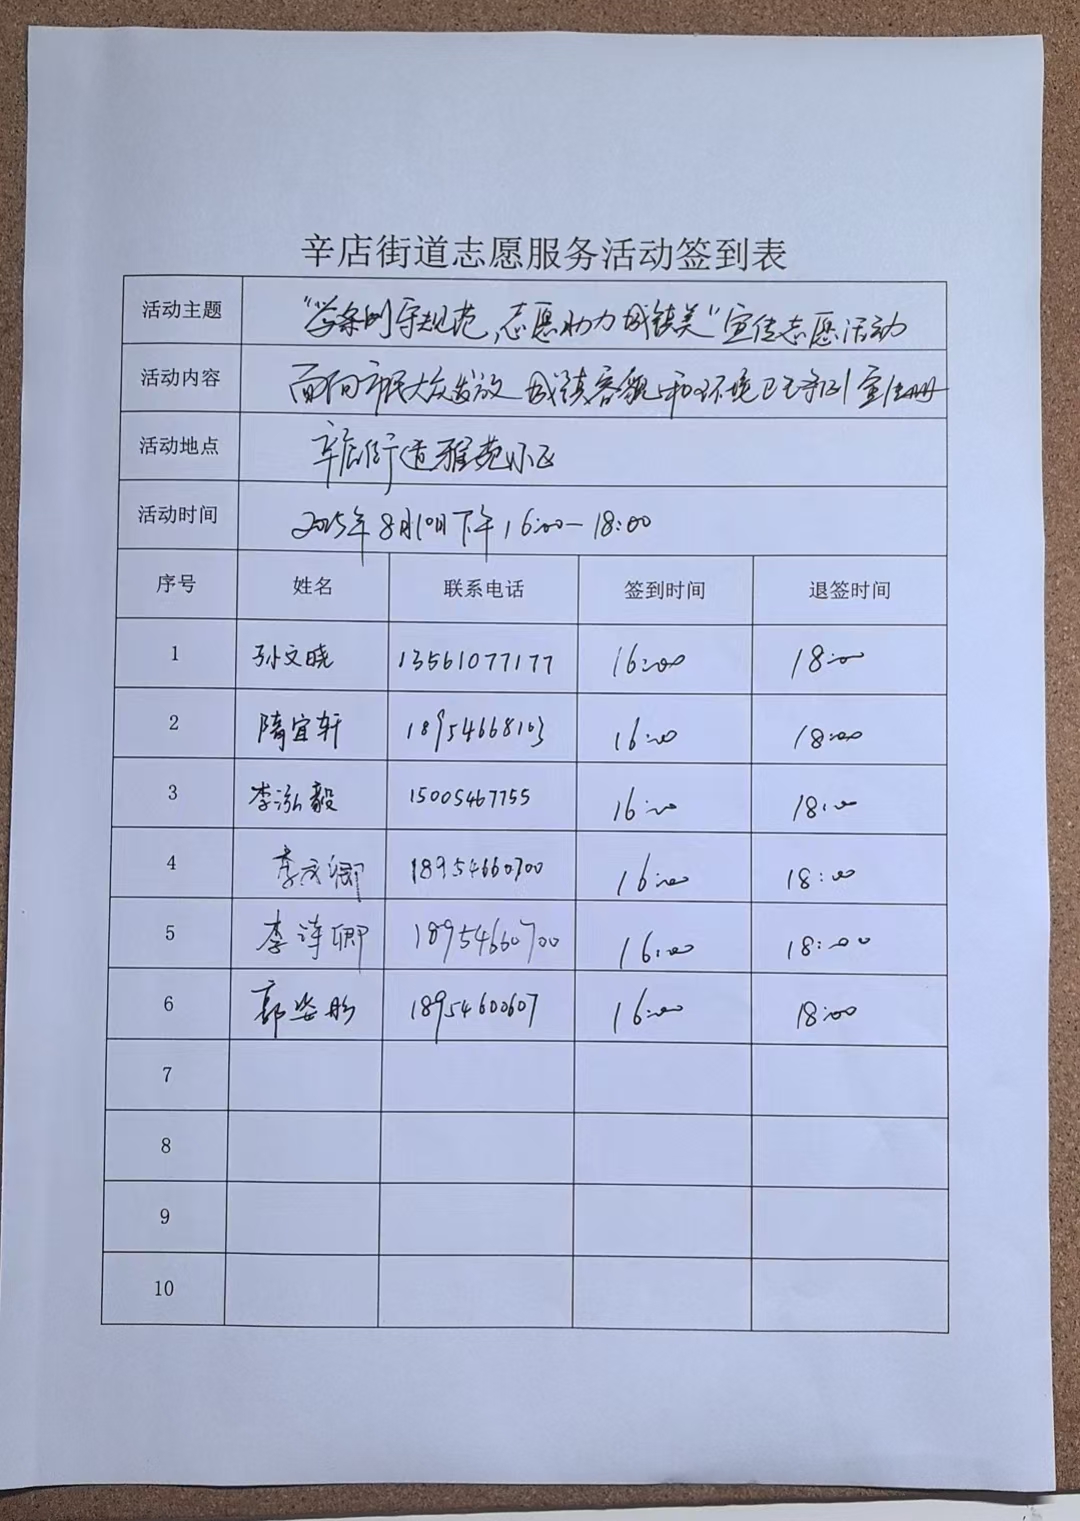 辛店街道志愿服务活动签到表
活动主题 “学条例守规范,志愿助力城镇美”宣传志愿活动
活动内容 面向市民大众发放城镇容貌和环境卫生条例宣传册
活动地点 辛店街道雅苑小区
活动时间 2025年8月10日下午16:00-18:00
序号 姓名 联系电话 签到时间 退签时间
1 孙文晓 13561077177 16:00 18:00
2 隋宜轩 18954668103 16:00 18:00
3 李泓毅 15005467755 16:00 18:00
4 李 卿 18954660700 16:00 18:00
5 李诗卿 18954660700 16:00 18:00
6 郭姿彤 18954600607 16:00 18:00
7
8
9
10